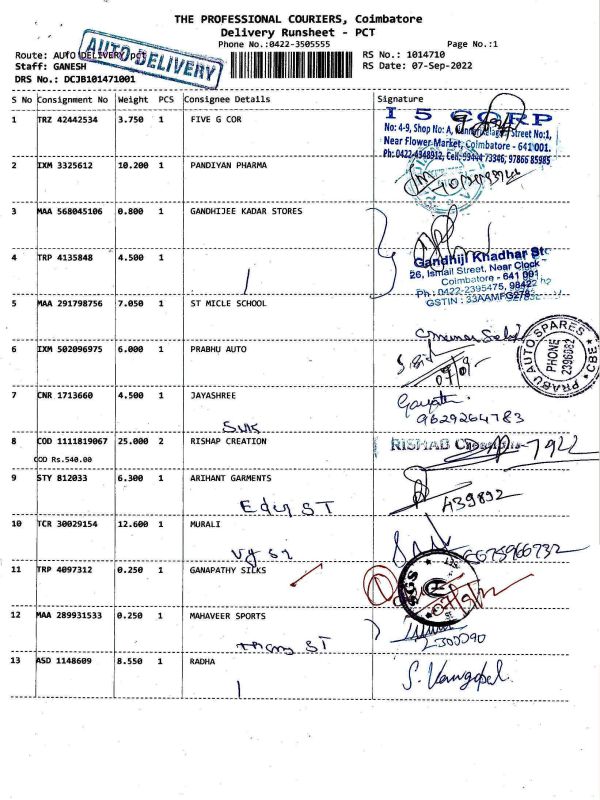 THE PROFESSIONAL COURIERS, Coimbatore
Delivery Runsheet - PCT
Phone No.:0422-3505555 Page No.:1
Route: AUTO DELIVERY/pct RS No.: 1014710
AUTO DELIVERY
Staff: GANESH RS Date: 07-Sep-2022
DRS No.: DCJB101471001
S No Consignment No Weight PCS Consignee Details Signature
1 TRZ 42442534 3.750 1 FIVE G COR
I 5 CORP
No: 4-9, Shop No: A, Street No:1,
Near Flower Market, Coimbatore - 641 001.
Ph: 0422-4348912, Cell: 99444 73346, 97866 85985
2 IXM 3325612 10.200 1 PANDIYAN PHARMA
3 MAA 568045106 0.800 1 GANDHIJEE KADAR STORES
4 TRP 4135848 4.500 1
Gandhiji Khadhar Sto
26, Ismail Street, Near Clock
Coimbatore - 641 001
Ph : 0422-2395475, 98422
GSTIN : 33AAMFG2783
5 MAA 291798756 7.050 1 ST MICLE SCHOOL
6 IXM 502096975 6.000 1 PRABHU AUTO
PRABU AUTO SPARES CBE
PHONE
2396082
7 CNR 1713660 4.500 1 JAYASHREE
Gayathri
9629264783
8 COD 1111819067 25.000 2 RISHAP CREATION
RISHAB
COD Rs.540.00
9 STY 812033 6.300 1 ARIHANT GARMENTS
A39892
10 TCR 30029154 12.600 1 MURALI
11 TRP 4097312 0.250 1 GANAPATHY SILKS
SGS
12 MAA 289931533 0.250 1 MAHAVEER SPORTS
13 ASD 1148609 8.550 1 RADHA